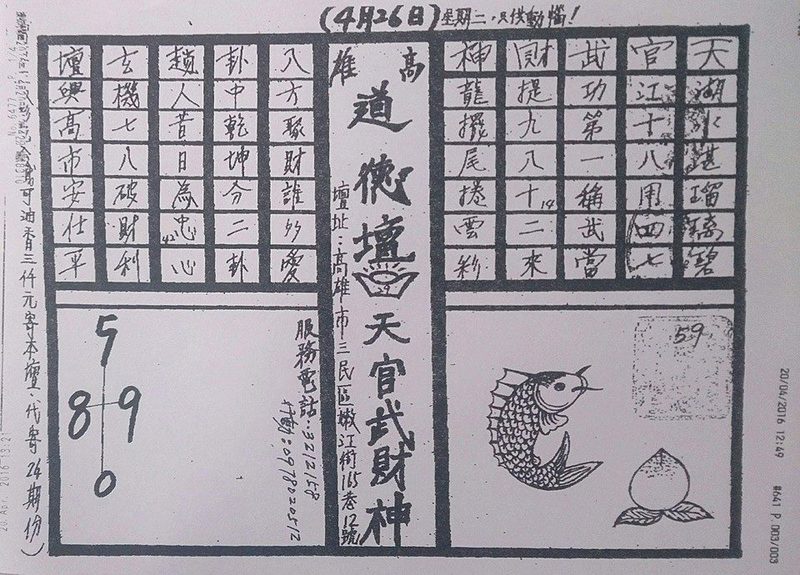 (4月26日)星期二,只供動惱!
天湖水湛瑠璃碧
官江十八用四七
武功第一稱武當
財提九八十二來
14
神龍擺尾捲雲彩
高雄
道德壇
29
天官武財神
壇址:高雄市三民區嫩江街165巷12號
八方聚財誰不愛
卦中乾坤分二卦
趙人昔日為忠心
42
玄機七八破財利
壇興高市安仕平
59
5
8 9
0
服務電話:3212158
行動:0978020512
油香三仟元寄本壇.代寄24期份)
20/04/2016 12:49
#641 P.003/003